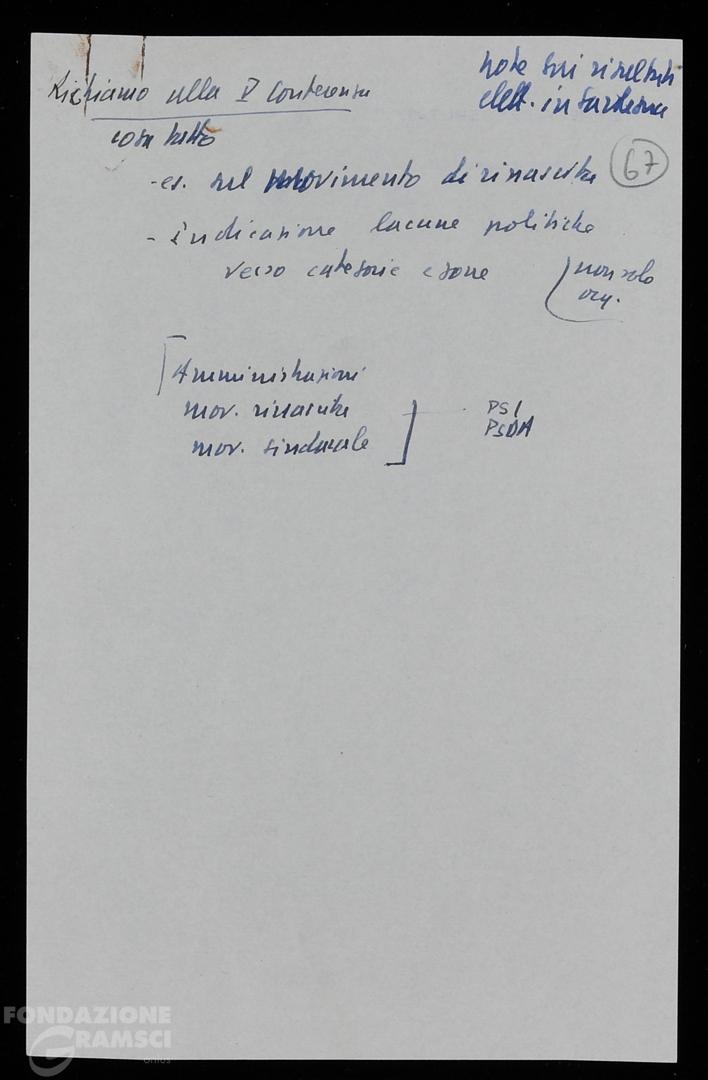 note sui risultati
elett. in Sardegna
67
Richiamo alla V Conferenza
cosa fatto
- es. sul movimento di rinascita
- indicazione lacune politiche
verso categorie e zone
non solo
org.
Amministrazioni
mov. rinascita
mov. sindacale
PSI
PSDA
FONDAZIONE
GRAMSCI
onlus